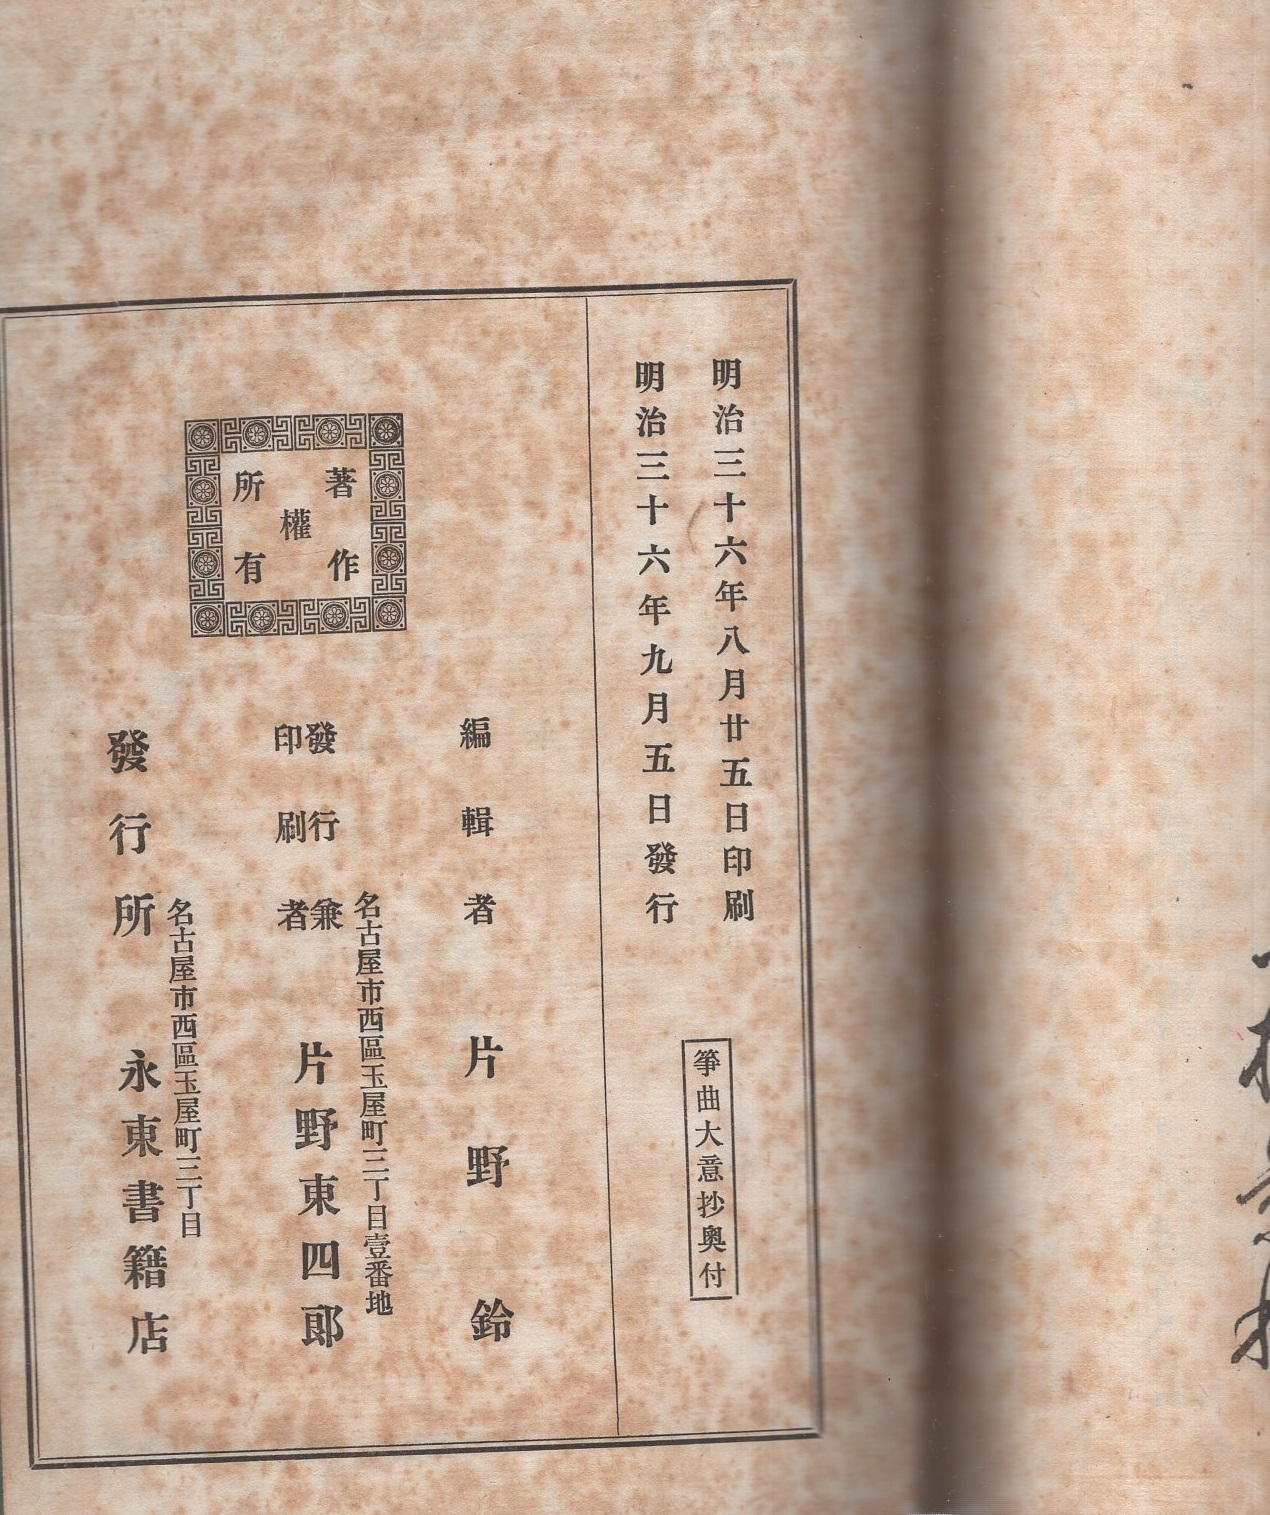 明治三十六年八月廿五日印刷
明治三十六年九月五日發行
箏曲大意抄奧付
著作權所有
編輯者 片野鈴
名古屋市西區玉屋町三丁目壹番地
發行兼
印刷者
片野東四郎
名古屋市西區玉屋町三丁目
發行所 永東書籍店